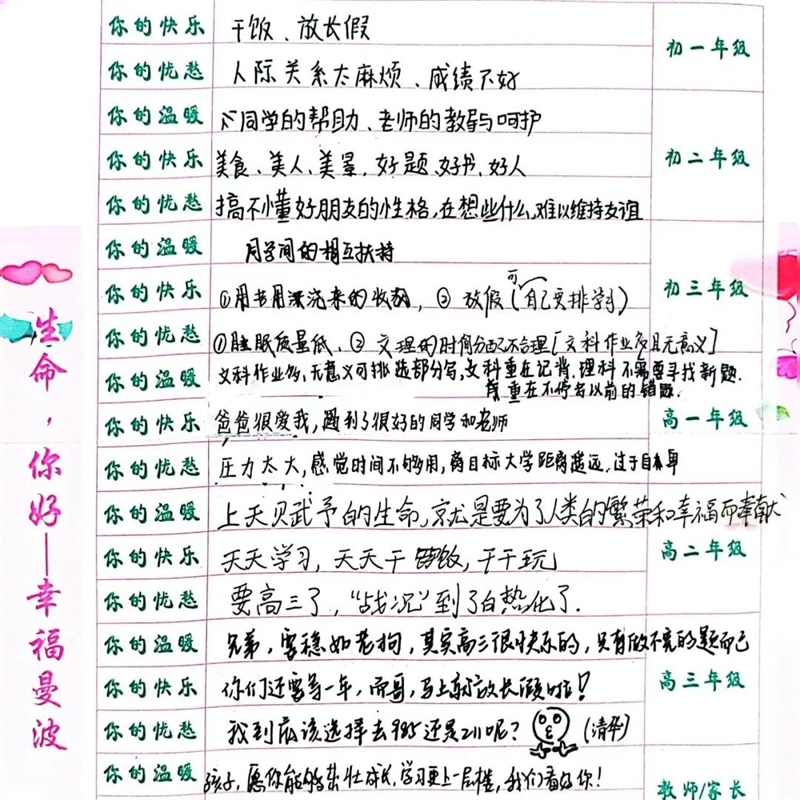 生命，你好——幸福曼波
你的快乐 干饭、放长假
初一年级
你的忧愁 人际关系太麻烦、成绩不好
你的温暖 同学的帮助、老师的教导与呵护
初二年级
你的快乐 美食、美人、美景，好题、好书、好人
你的忧愁 搞不懂好朋友的性格，在想些什么，难以维持友谊
你的温暖 同学间的相互扶持
初三年级
你的快乐 ①用苦用汗浇来的收获，② 放假(可自己安排学习)
你的忧愁 ①睡眠质量低、② 文理的时间分配不合理[文科作业多且无意义]
你的温暖 文科作业多，无意义可挑选部分写，文科重在记背，理科不需要寻找新题，
重在不停看以前的错题.
高一年级
你的快乐 爸爸很爱我，遇到了很好的同学和老师
你的忧愁 压力太大，感觉时间不够用，离目标大学距离越远，过于自卑
你的温暖 上天赋予的生命，就是要为了人类的繁荣和幸福而奉献
高二年级
你的快乐 天天学习，天天干饭，干干玩
你的忧愁 要高三了，“战况”到了白热化了.
你的温暖 兄弟，要稳如老狗，其实高三很快乐的，只有做不完的题而已
高三年级
你的快乐 你们还要等一年，而哥，马上就放长假啦！
你的忧愁 我到底该选择去985还是211呢？(清华)
你的温暖 孩子，愿你能够茁壮成长，学习更上一层楼，我们看好你！
教师/家长